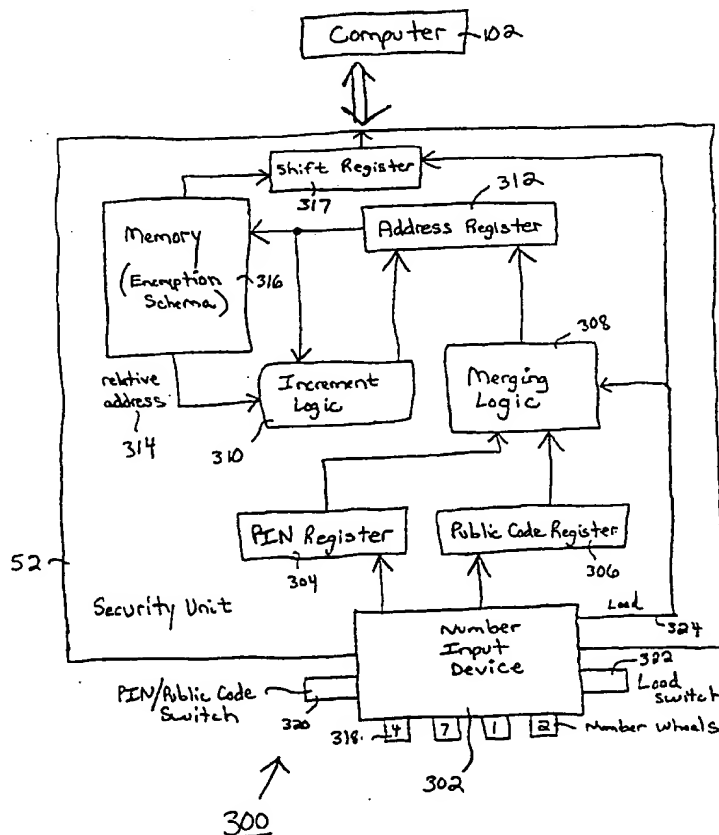 Computer
102
Shift Register
317
312
Address Register
Memory
(Enemption
Schema)
316
308
Merging
Logic
relative
address
314
Increment
Logic
310
PIN Register
304
Public Code Register
306
52
Security Unit
Load
324
Number
Input
Device
322
Load
switch
PIN/Public Code
Switch
320
318.
4
7
1
2
Number wheels
302
300